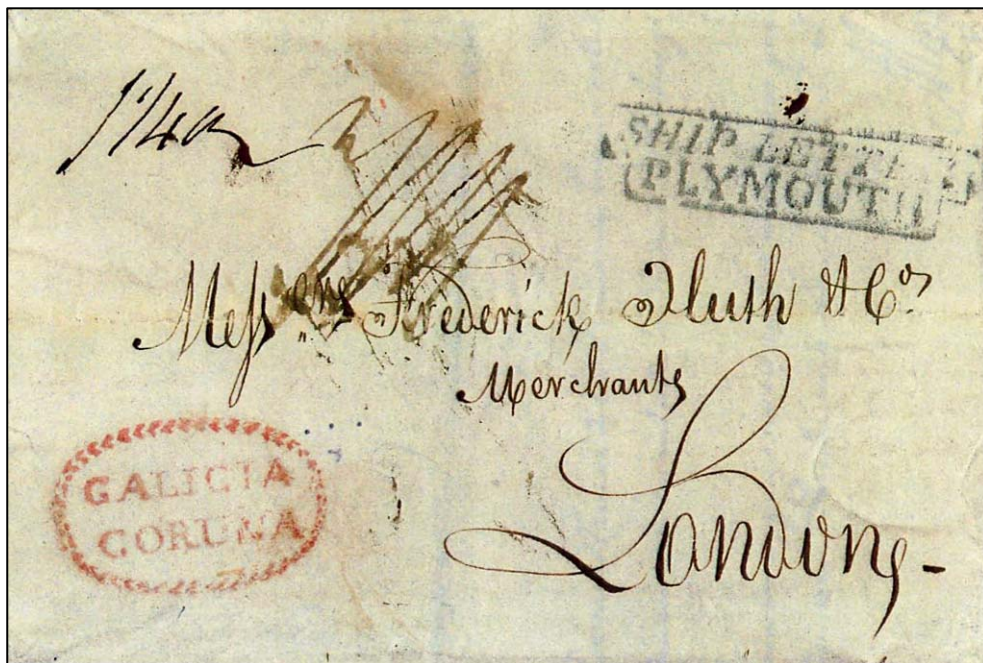 SHIP LETTER
PLYMOUTH
Messrs Frederick Huth & Co.
Merchants
London
GALICIA
CORUNA